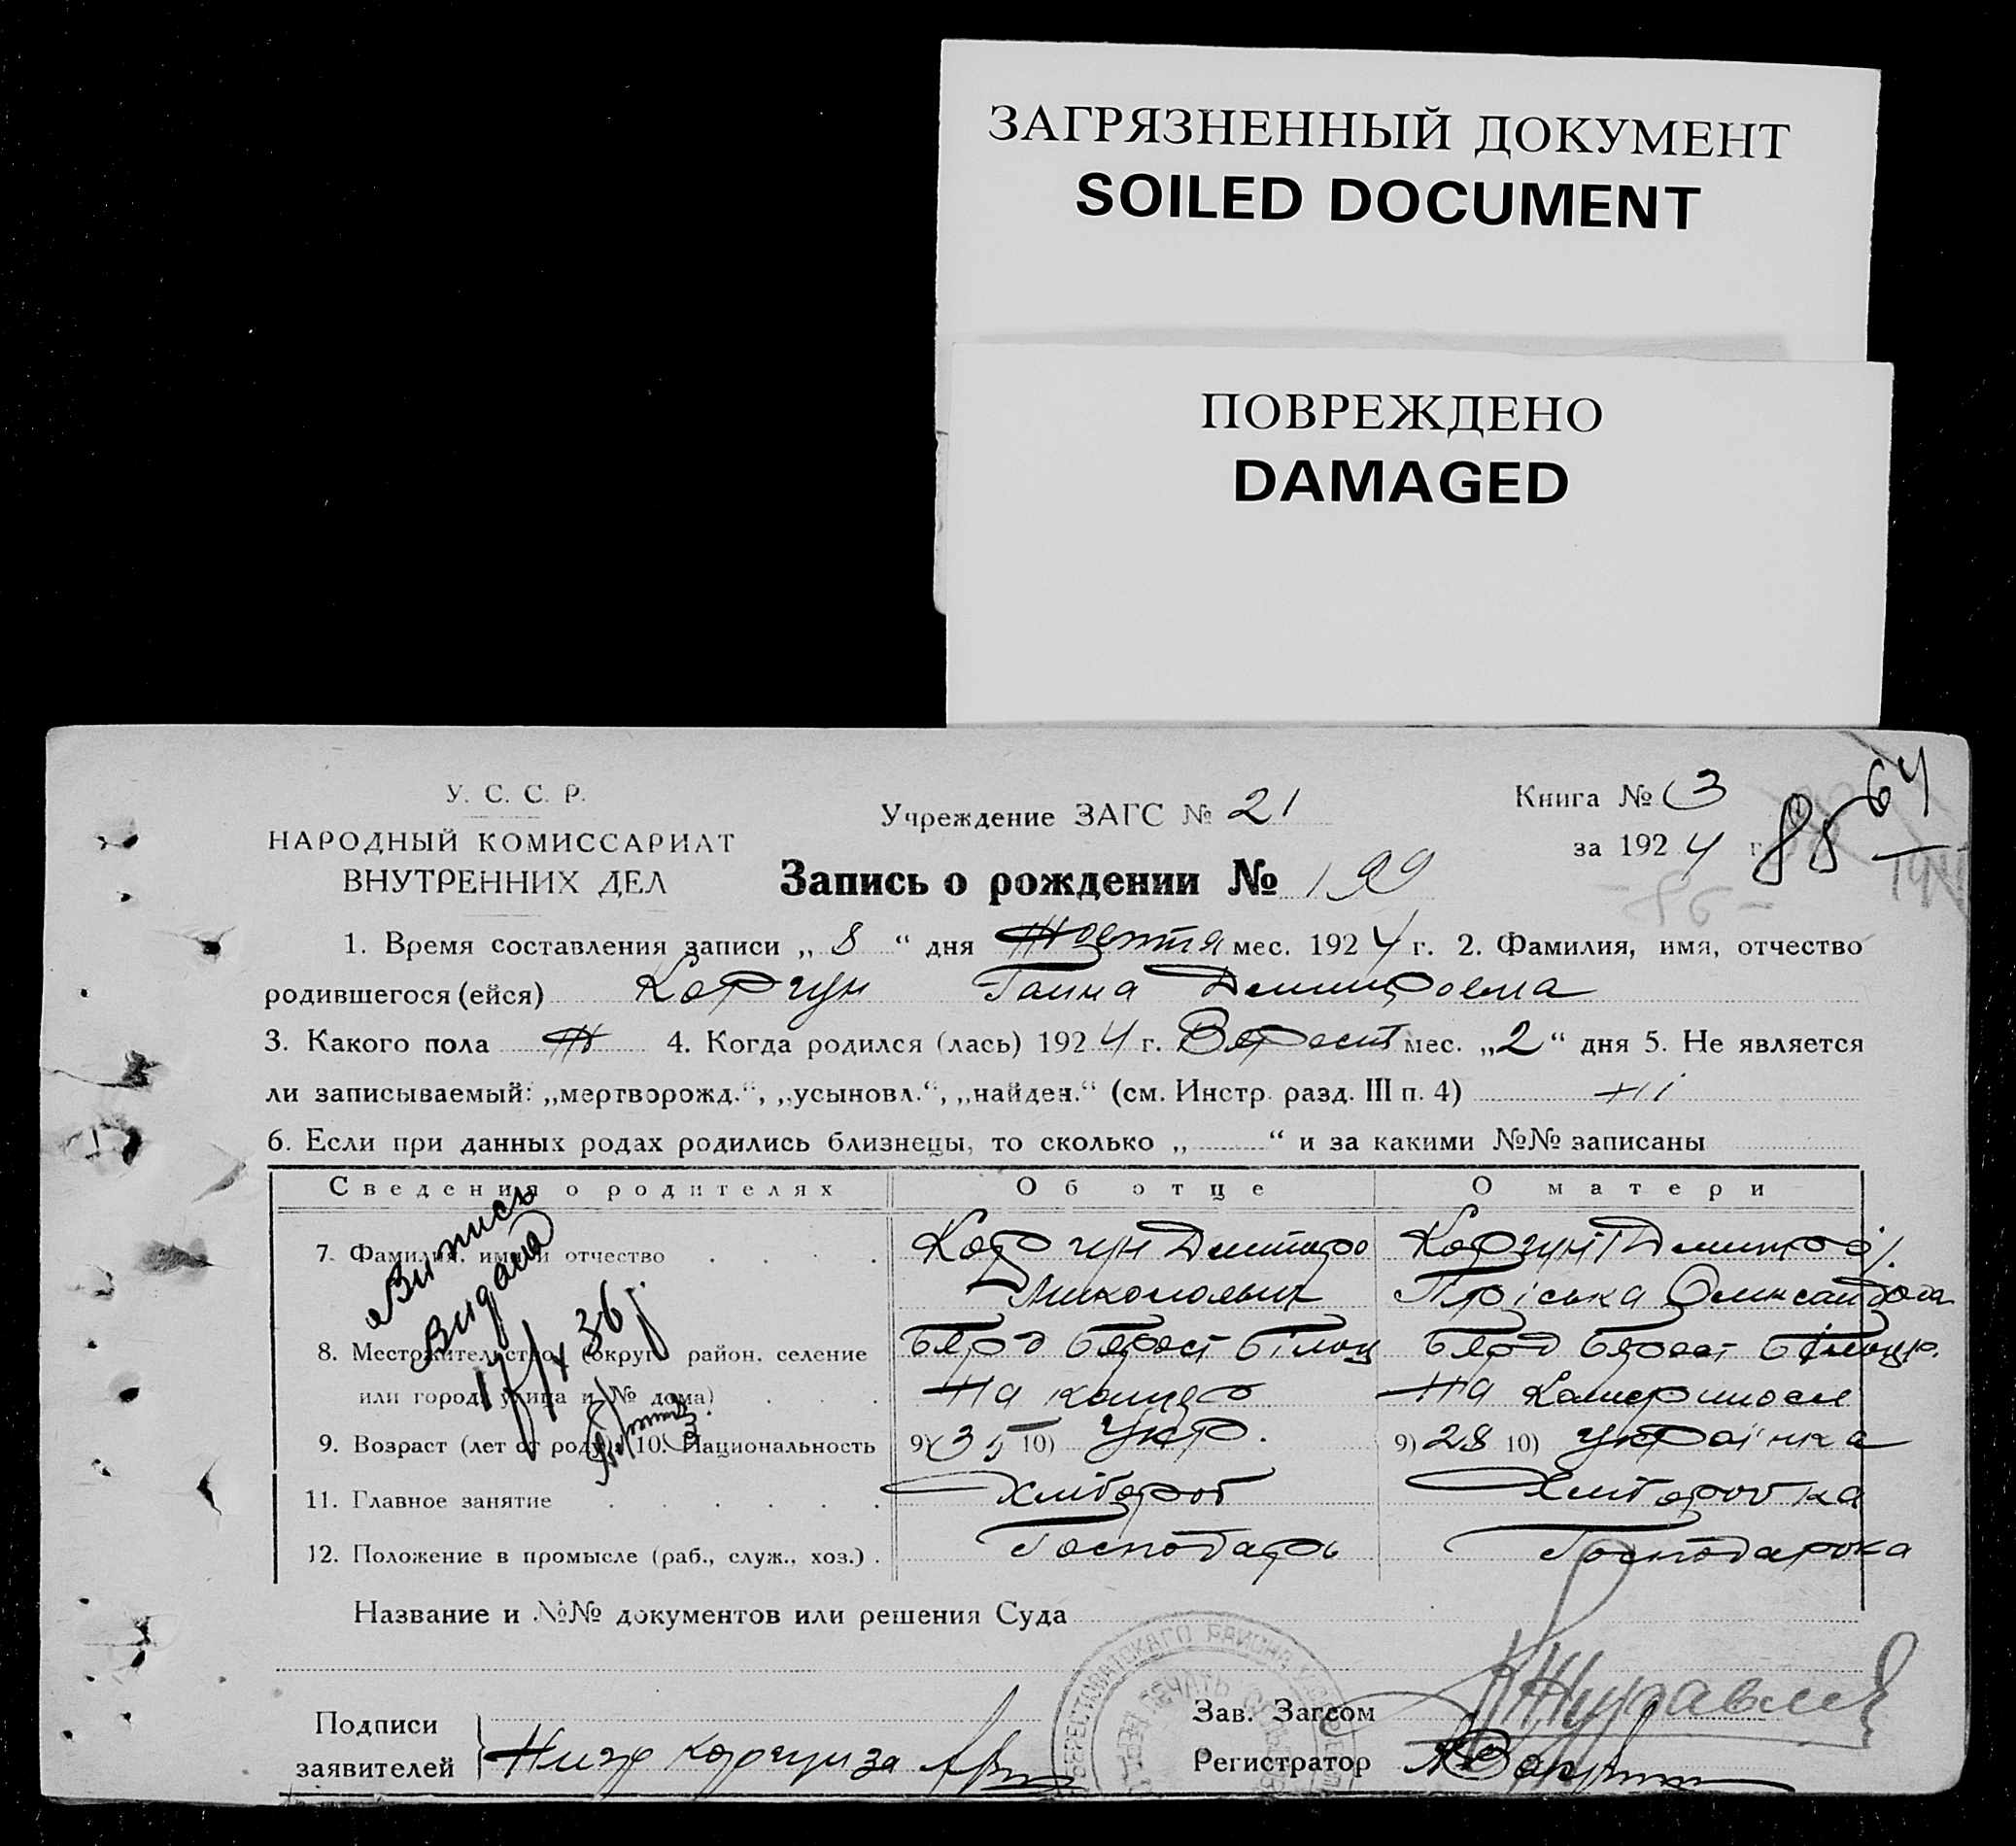 ЗАГРЯЗНЕННЫЙ ДОКУМЕНТ
SOILED DOCUMENT
ПОВРЕЖДЕНО
DAMAGED
У. С. С. Р.
НАРОДНЫЙ КОМИССАРИАТ
ВНУТРЕННИХ ДЕЛ
Учреждение ЗАГС № 21
Книга № 3
за 1924 г.
85 64
-86-
Запись о рождении № 199
1. Время составления записи „ 8 “ дня Жовтня мес. 1924 г. 2. Фамилия, имя, отчество
родившегося (ейся) Коргун Ганна Дмитровна
3. Какого пола Ж 4. Когда родился (лась) 1924 г. Верест мес. „2“ дня 5. Не является
ли записываемый: „мертворожд.“, „усыновл.“, „найден.“ (см. Инстр. разд. III п. 4) Ні
6. Если при данных родах родились близнецы, то сколько „ “ и за какими №№ записаны
Сведения о родителях Об отце О матери
7. Фамилия, имя и отчество Коргун Дмитро Коргун
Миколович Пріська Олександров
8. Местожительство (округ, район, селение Берд Берест Білоц Берд Берест Білоцр.
или город, улица и № дома)
9. Возраст (лет от роду) 10. Национальность 9) 35 10) Укр. 9) 28 10) Українка
11. Главное занятие Хлібороб Хліборобка
12. Положение в промысле (раб., служ., хоз.) Господарь Господарька
Випись
Видана
17/X 36
Название и №№ документов или решения Суда
Подписи
заявителей
Зав. Загсом Журавль
Регистратор